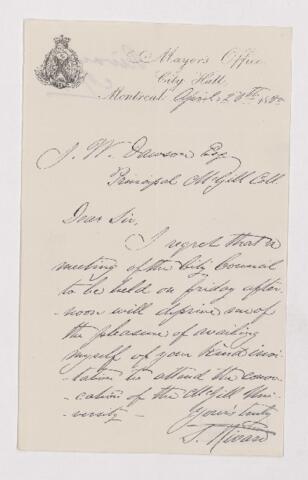 Mayor's Office
City Hall
Montreal April 28th 1880
J. W. Dawson Esq
Principal McGill Coll.
Dear Sir,
I regret that a
meeting of the City Council
to be held on friday after-
-noon will deprive me of
the pleasure of availing
myself of your kind invi-
-tation to attend the convo-
-cation of the McGill Uni-
-versity -
Yours truly
S. Rivard